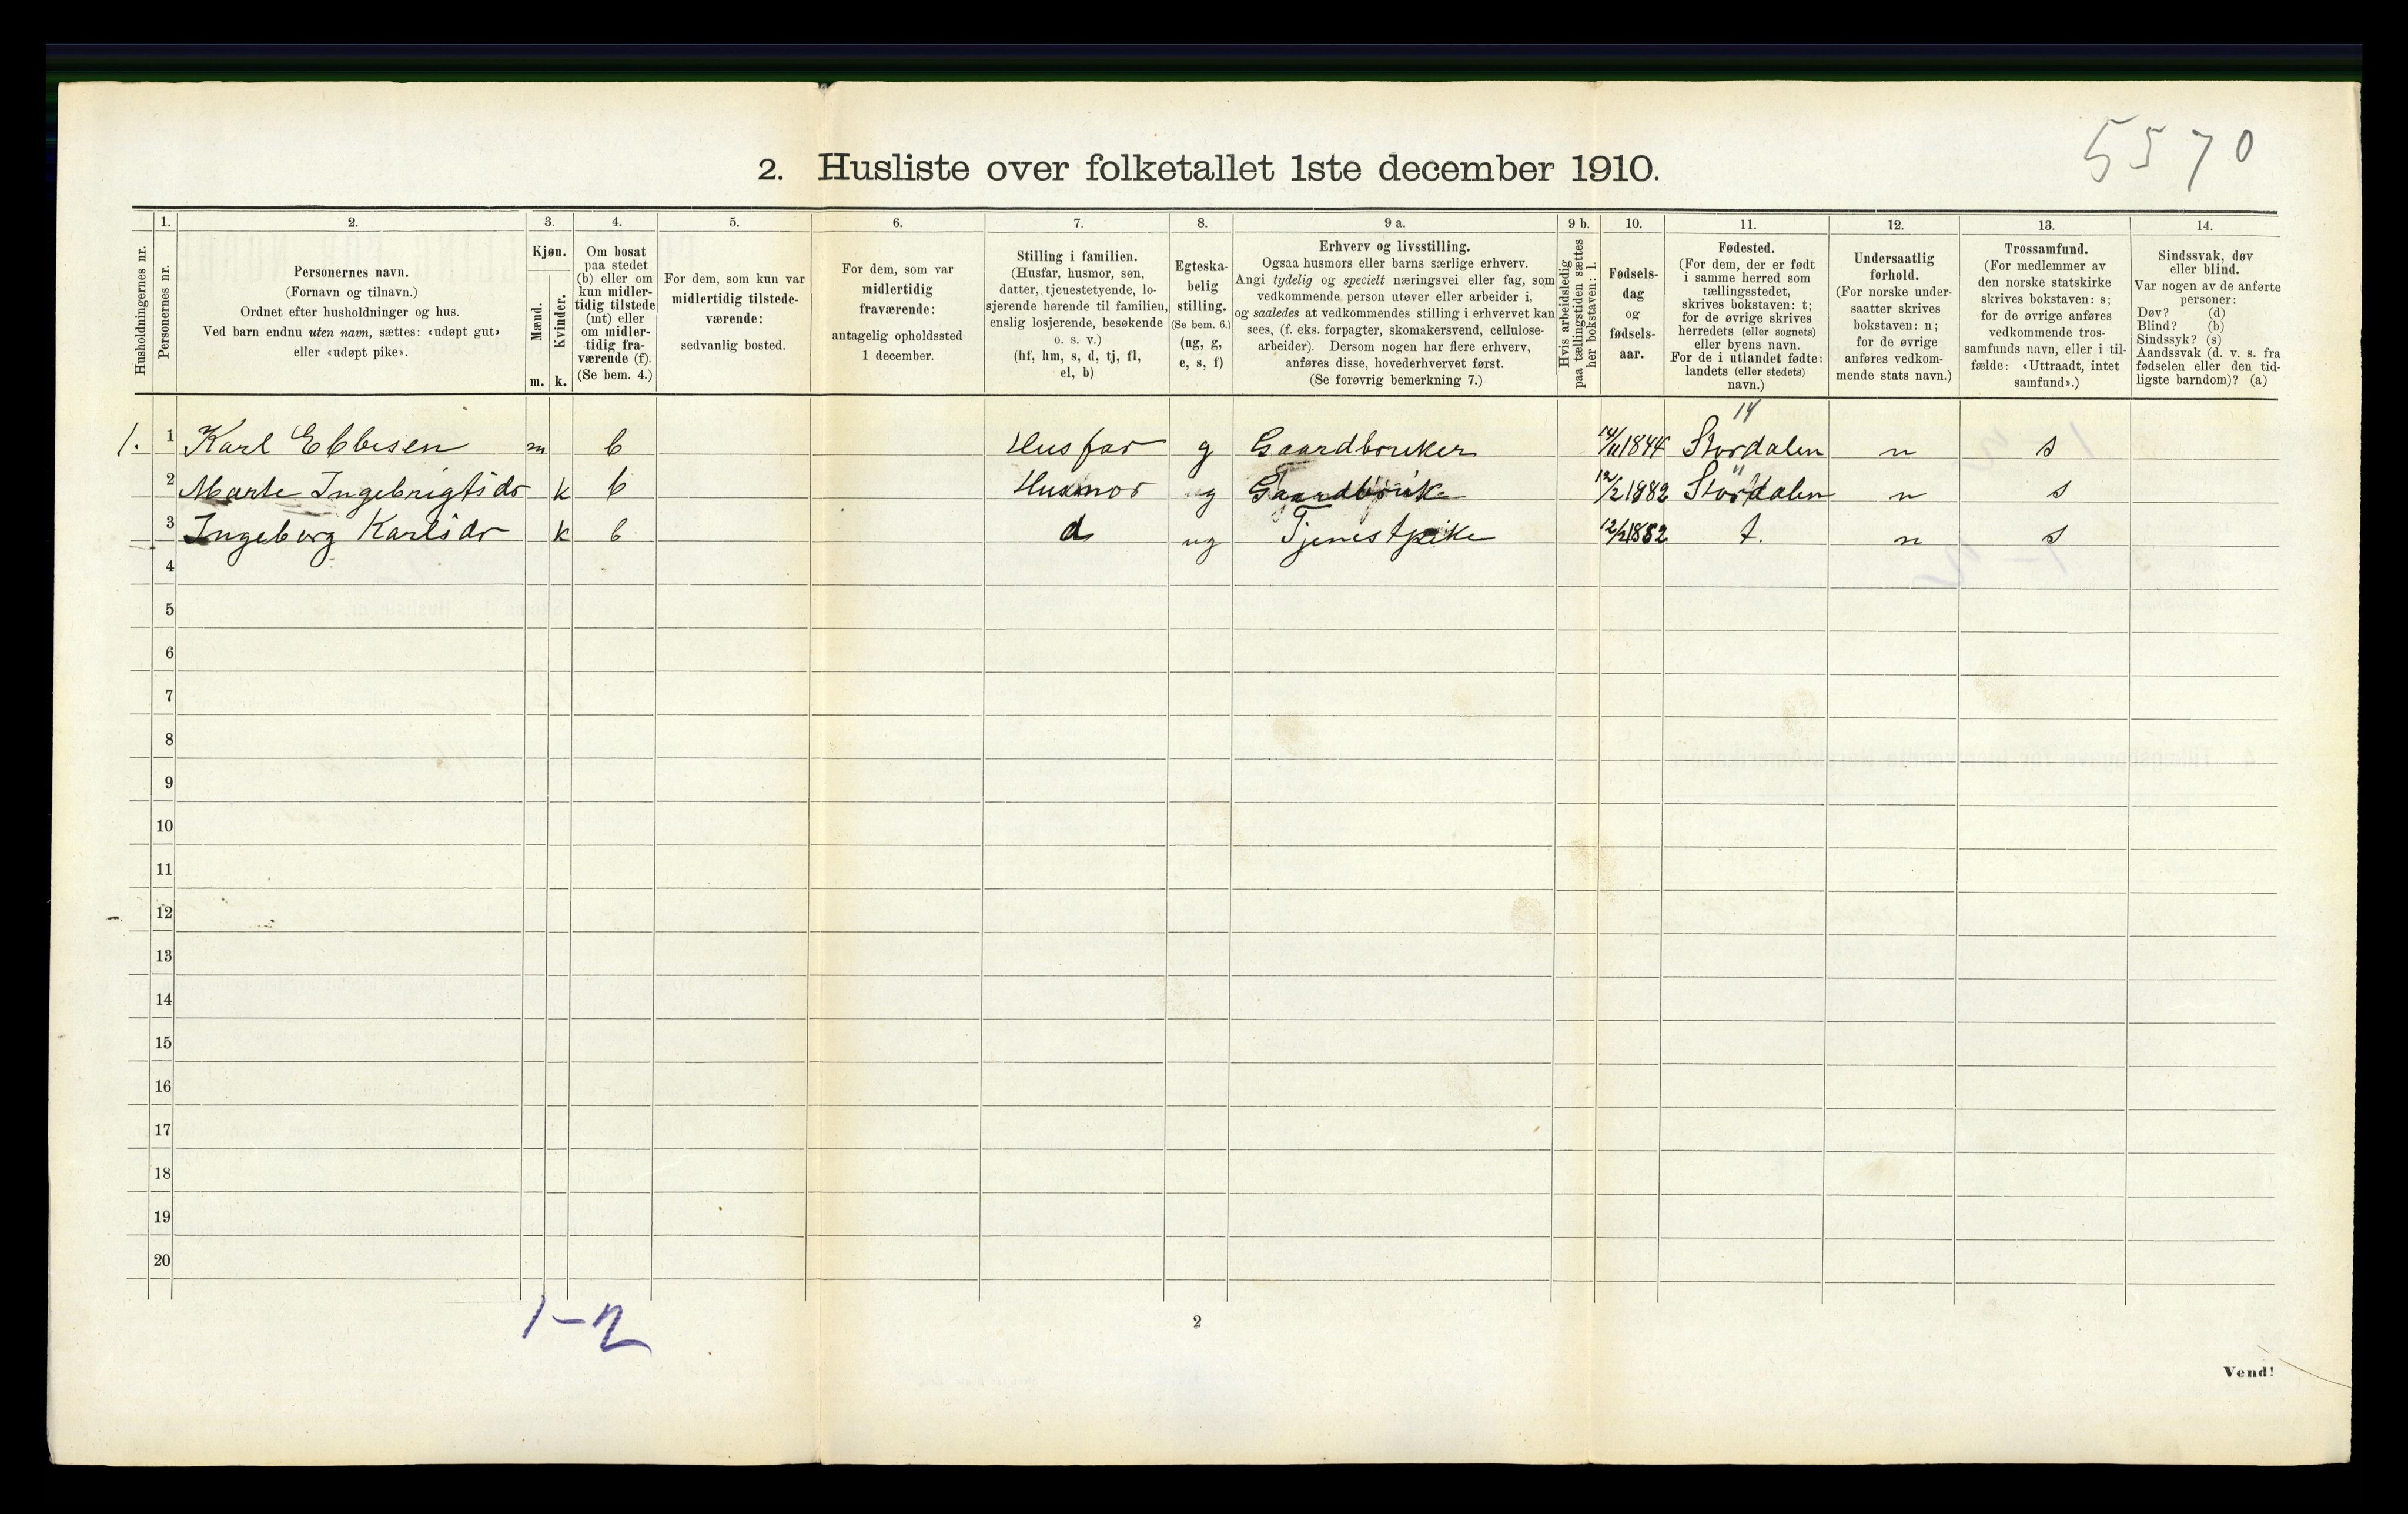 5570
2. Husliste over folketallet 1ste december 1910.
Husholdningernes nr.
1.
Personernes nr.
2.
Personernes navn.
(Fornavn og tilnavn.)
Ordnet efter husholdninger og hus.
Ved barn endnu uten navn, sættes: «udøpt gut»
eller «udøpt pike».
3.
Kjøn.
Mænd.
Kvinder.
m. k.
4.
Om bosat
paa stedet
(b) eller om
kun midler-
tidig tilstede
(mt) eller
om midler-
tidig fra-
værende (f).
(Se bem. 4.)
5.
For dem, som kun var
midlertidig tilstede-
værende:
sedvanlig bosted.
6.
For dem, som var
midlertidig
fraværende:
antagelig opholdssted
1 december.
7.
Stilling i familien.
(Husfar, husmor, søn,
datter, tjenestetyende, lo-
sjerende hørende til familien,
enslig losjerende, besøkende
o. s. v.)
(hf, hm, s, d, tj, fl,
el, b)
8.
Egteska-
belig
stilling.
(Se bem. 6.)
(ug, g,
e, s, f)
9 a.
Erhverv og livsstilling.
Ogsaa husmors eller barns særlige erhverv.
Angi tydelig og specielt næringsvei eller fag, som
vedkommende person utøver eller arbeider i,
og saaledes at vedkommendes stilling i erhvervet kan
sees, (f. eks. forpagter, skomakersvend, cellulose-
arbeider). Dersom nogen har flere erhverv,
anføres disse, hovederhvervet først.
(Se forøvrig bemerkning 7.)
9 b.
Hvis arbeidsledig
paa tællingstiden sættes
her bokstaven: l.
10.
Fødsels-
dag
og
fødsels-
aar.
11.
Fødested.
(For dem, der er født
i samme herred som
tællingsstedet,
skrives bokstaven: t;
for de øvrige skrives
herredets (eller sognets)
eller byens navn.
For de i utlandet fødte:
landets (eller stedets)
navn.)
12.
Undersaatlig
forhold.
(For norske under-
saatter skrives
bokstaven: n;
for de øvrige
anføres vedkom-
mende stats navn.)
13.
Trossamfund.
(For medlemmer av
den norske statskirke
skrives bokstaven: s;
for de øvrige anføres
vedkommende tros-
samfunds navn, eller i til-
fælde: «Uttraadt, intet
samfund».)
14.
Sindssvak, døv
eller blind.
Var nogen av de anførte
personer:
Døv? (d)
Blind? (b)
Sindssyk? (s)
Aandssvak (d. v. s. fra
fødselen eller den tid-
ligste barndom)? (a)
14
1. 1 Karl Ebbesen m b Husfar g Gaardbruker 14/11 1844 Stordalen n s
2 Marte Ingebrigtsdr k b Husmor g 12/2 1882 Stordalen n s
3 Ingeborg Karlsdr k b d ug Tjenestpike 12/2 1882 t. n s
4
5
6
7
8
9
10
11
12
13
14
15
16
17
18
19
20
1-2
2
Vend!